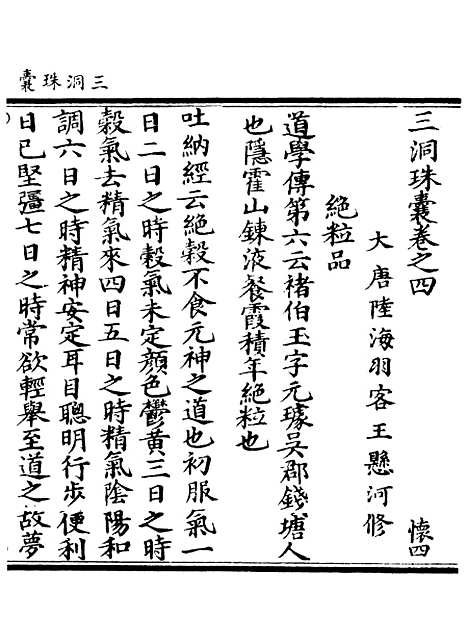 三洞珠囊
三洞珠囊卷之四 懷四
大唐陸海羽客王懸河修
絶粒品
道學傳第六云褚伯玉字元璩吳郡錢塘人
也隱霍山鍊液餐霞積年絶粒也
吐納經云絶穀不食元神之道也初服氣一
日二日之時穀氣未定顔色鬱黄三日之時
穀氣去精氣來四日五日之時精氣陰陽和
調六日之時精神安定耳目聰明行步便利
日已堅彊七日之時常欲輕舉至道之故夢